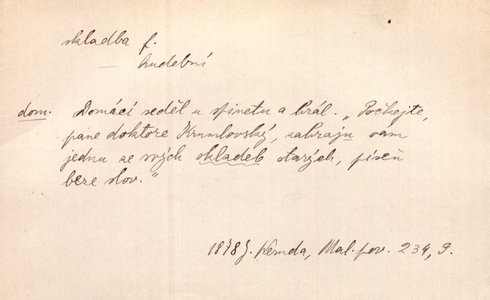 skladba f.
— hudební
dom. Domácí seděl u spinetu a hrál. „Počkejte,
pane doktore Krumlovský, zahraju vám
jednu ze svých skladeb starých, píseň
beze slov.“
1878 J. Neruda, Mal. pov. 234, 9.